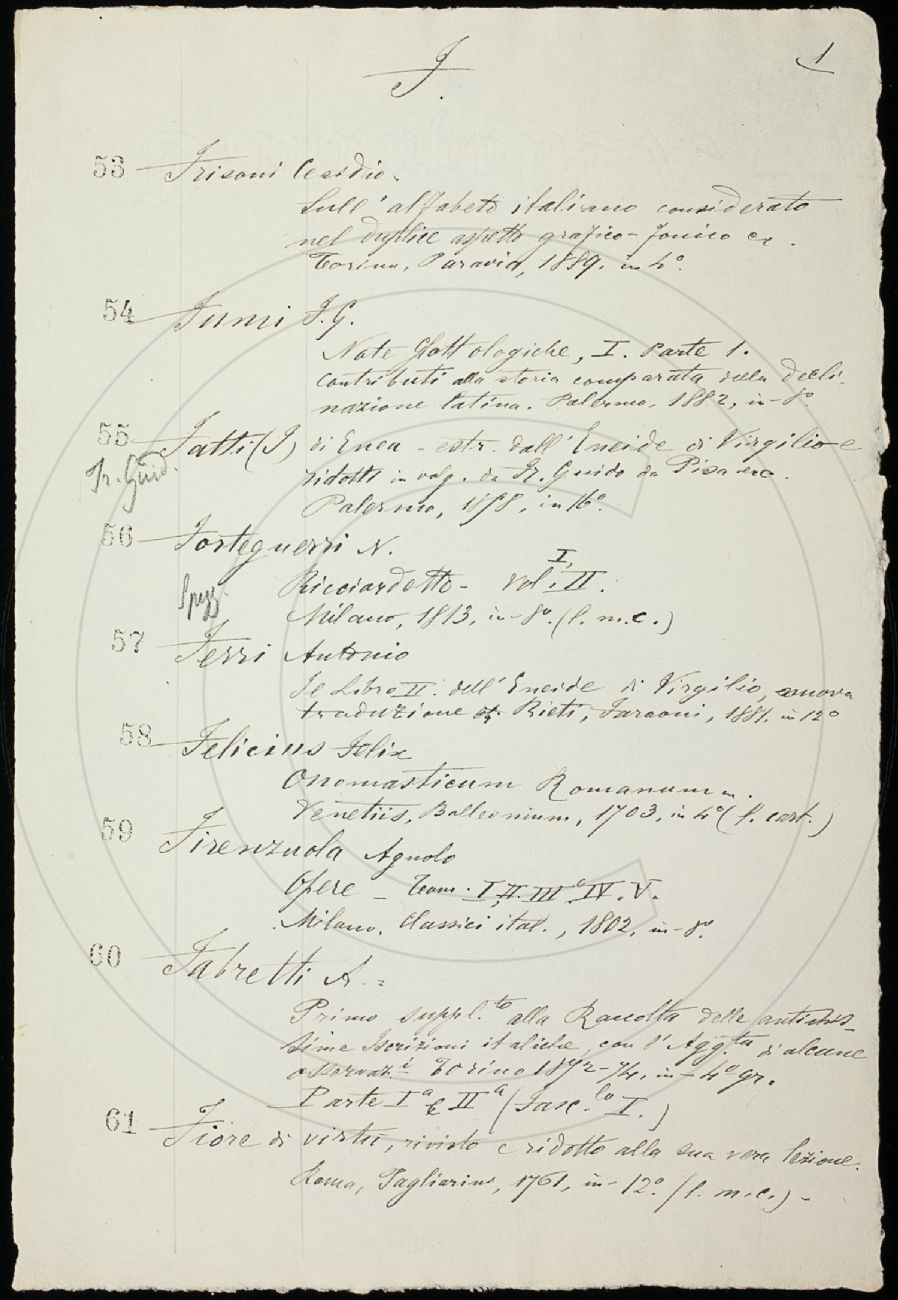 F.
1
53 Frisoni Cesidio.
Sull' alfabeto italiano considerato
nel duplice aspetto grafico-fonico ec.
Torino, Paravia, 1889. in 4º.
54 Fumi F. G.
Note Glottologiche, I. Parte 1.
Contributi alla storia comparata della decli-
nazione latina. Palermo, 1882, in-8º
55 Fatti (I) di Enea - estr. dall' Eneide di Virgilio e
Fr. Guid.
ridotti in volg. da Fr. Guido da Pisa ecc.
Palermo, 1858, in 16º.
56 Forteguerri N.
Ricciardetto - Vol. I, II.
Milano, 1813, in-8º. (l. m.c.)
57 Ferri Antonio
Il Libro II. dell' Eneide di Virgilio, nuova
traduzione Rieti, Faraoni, 1881. in 12º
58 Felicius Felix
Onomasticum Romanum.
Venetiis, Balleonium, 1703, in 4º (l. cart.)
59 Firenzuola Agnolo
Opere - Tom. I, II. III e IV. V.
Milano, Classici ital., 1802, in-8º.
60 Fabretti A.
Primo suppl.to alla Raccolta delle antichis-
sime Iscrizioni italiche con l' Agg.ta di alcune
osservaz.i Torino 1872-74, in-4º gr.
Parte Iª e IIª (Fasc.lo I.)
61 Fiore di virtù, rivisto e ridotto alla sua vera lezione.
Roma, Pagliarini, 1761, in-12º. (l. m.c.) -